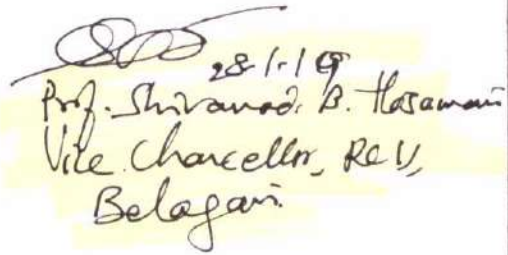 28/1/19
Prof. Shivanand. B. Hosamani
Vice Chancellor, RCU,
Belagavi